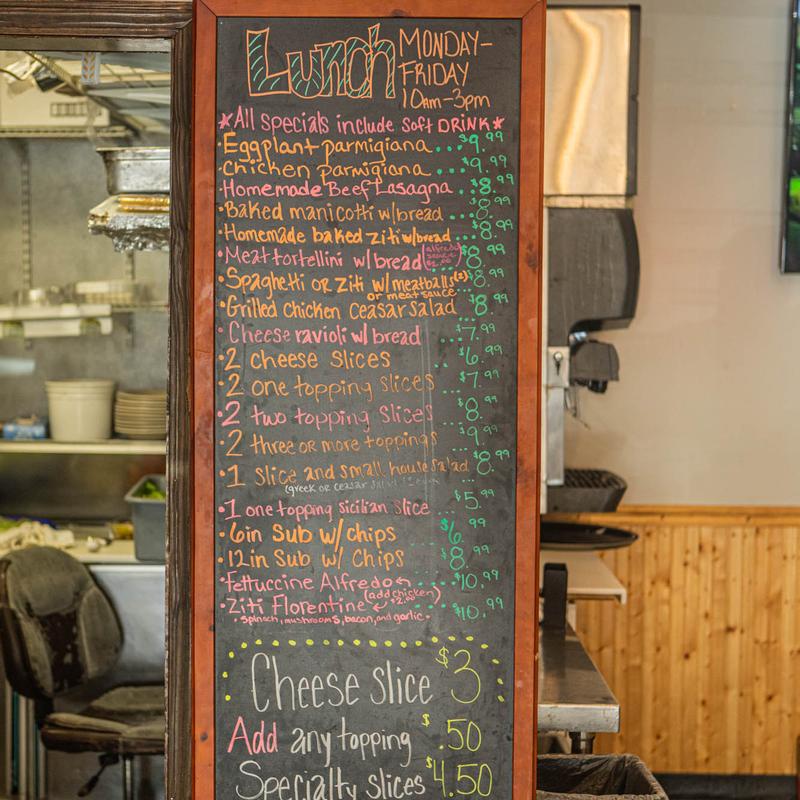 Lunch MONDAY-
FRIDAY
10am-3pm
*All specials include soft DRINK*
•Eggplant parmigiana...$9.99
•Chicken parmigiana...$9.99
•Homemade Beef Lasagna..$8.99
•Baked manicotti w/bread...$8.99
•Homemade baked ziti w/bread...$8.99
•Meat tortellini w/bread (alfredo sauce $2.00) $8.99
•Spaghetti or Ziti w/ meatballs(2) $8.99
or meat sauce
•Grilled chicken ceasar salad $8.99
•Cheese ravioli w/ bread ...$7.99
•2 cheese slices ...$6.99
•2 one topping slices...$7.99
•2 two topping slices...$8.99
•2 three or more toppings...$9.99
•1 slice and small house salad $8.99
(greek or ceasar salad
•1 one topping sicilian slice...$5.99
•6in Sub w/ chips...$6.99
•12in Sub w/ Chips...$8.99
•Fettuccine Alfredo....$10.99
(add chicken)
$2.00
•Ziti Florentine ...$10.99
•spinach, mushrooms, bacon, and garlic•
Cheese slice $3
Add any topping $.50
Specialty slices $4.50